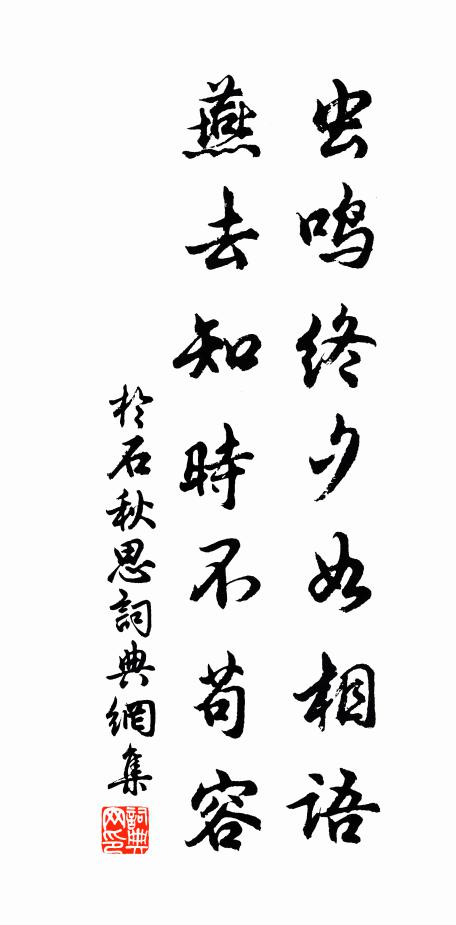 虫鸣终夕如相语
燕去知時不苟容
於石秋思詞典網集
詞典
网印